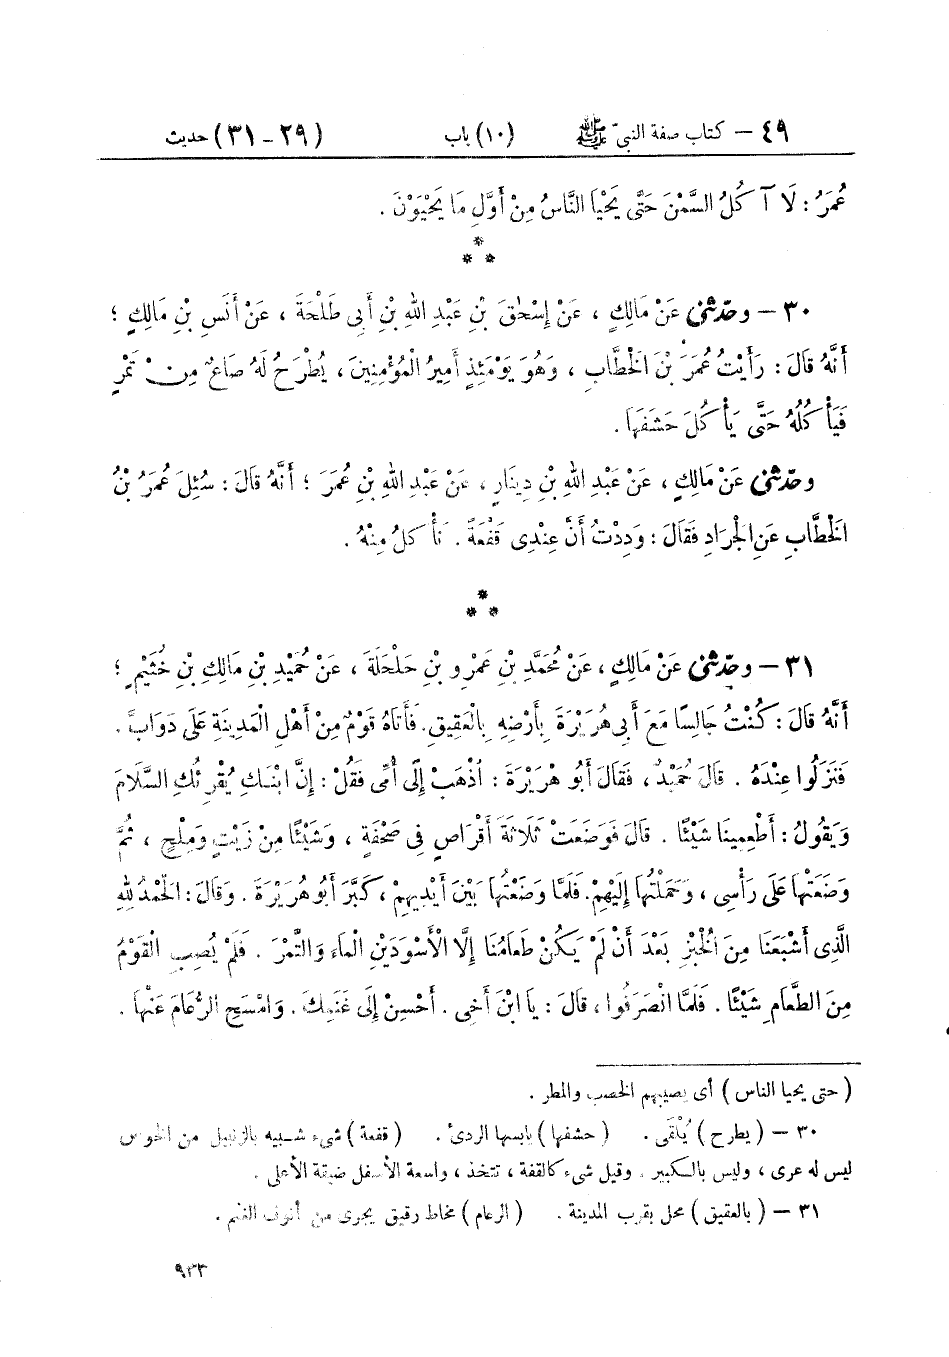 ٤٩ – كتاب صفة النبىّ ﷺ (١٠) باب (٢٩ – ٣١) حديث
عُمَرُ : لَا آكُلُ السَّمْنَ حَتَّى يَحْيَا النَّاسُ مِنْ أَوَّلِ مَا يَحْيَوْنَ .
*
* *
٣٠ – وحدّثنى عَنْ مَالِكٍ ، عَنْ إِسْحٰقَ بْنِ عَبْدِ اللهِ بْنِ أَبِى طَلْحَةَ ، عَنْ أَنَسِ بْنِ مَالِكٍ ؛
أَنَّهُ قَالَ : رَأَيْتُ عُمَرَ بْنَ الْخَطَّابِ ، وَهُوَ يَوْمَئِذٍ أَمِيرُ الْمُؤْمِنِينَ ، يُطْرَحُ لَهُ صَاعٌ مِنْ تَمْرٍ
فَيَأْكُلُهُ حَتَّى يَأْكُلَ حَشَفَهَا .
وحدّثنى عَنْ مَالِكٍ ، عَنْ عَبْدِ اللهِ بْنِ دِينَارٍ ، عَنْ عَبْدِ اللهِ بْنِ عُمَرَ ؛ أَنَّهُ قَالَ : سُئِلَ عُمَرُ بْنُ
الْخَطَّابِ عَنِ الْجَرَادِ فَقَالَ : وَدِدْتُ أَنَّ عِنْدِى قَفْعَةً . نَأْكُلُ مِنْهُ .
*
* *
٣١ – وحدّثنى عَنْ مَالِكٍ ، عَنْ مُحَمَّدِ بْنِ عَمْرِو بْنِ حَلْحَلَةَ ، عَنْ حُمَيْدِ بْنِ مَالِكِ بْنِ خُثَيْمٍ ؛
أَنَّهُ قَالَ : كُنْتُ جَالِسًا مَعَ أَبِى هُرَيْرَةَ بِأَرْضِهِ بِالْعَقِيقِ . فَأَتَاهُ قَوْمٌ مِنْ أَهْلِ الْمَدِينَةِ عَلَى دَوَابَّ .
فَنَزَلُوا عِنْدَهُ . قَالَ حُمَيْدٌ ، فَقَالَ أَبُو هُرَيْرَةَ : اُذْهَبْ إِلَى أُمِّى فَقُلْ : إِنَّ ابْنَكِ يُقْرِئُكِ السَّلَامَ
وَيَقُولُ : أَطْعِمِينَا شَيْئًا . قَالَ فَوَضَعَتْ ثَلَاثَةَ أَقْرَاصٍ فِى صَحْفَةٍ ، وَشَيْئًا مِنْ زَيْتٍ وَمِلْحٍ ، ثُمَّ
وَضَعَتْهَا عَلَى رَأْسِى ، وَحَمَلْتُهَا إِلَيْهِمْ . فَلَمَّا وَضَعْتُهَا بَيْنَ أَيْدِيهِمْ ، كَبَّرَ أَبُو هُرَيْرَةَ . وَقَالَ : الْحَمْدُ لِلهِ
الَّذِى أَشْبَعَنَا مِنَ الْخُبْزِ بَعْدَ أَنْ لَمْ يَكُنْ طَعَامُنَا إِلَّا الْأَسْوَدَيْنِ الْمَاءَ وَالتَّمْرَ . فَلَمْ يُصِبِ الْقَوْمُ
مِنَ الطَّعَامِ شَيْئًا . فَلَمَّا انْصَرَفُوا ، قَالَ : يَا ابْنَ أَخِى . أَحْسِنْ إِلَى غَنَمِكَ . وَامْسَحِ الرُّعَامَ عَنْهَا .
(حتى يحيا الناس) أى يصيبهم الخصب والمطر .
٣٠ – (يطرح) يُلْقَى . (حشفها) يابسها الردئ . (قفعة) شىء شبيه بالزنبيل من الخوص
ليس له عرى ، وليس بالكبير . وقيل شىء كالقفة ، تتخذ ، واسعة الأسفل ضيقة الأعلى .
٣١ – (بالعقيق) محل بقرب المدينة . (الرعام) مخاط رقيق يجرى من أنوف الغنم .
٩٣٣